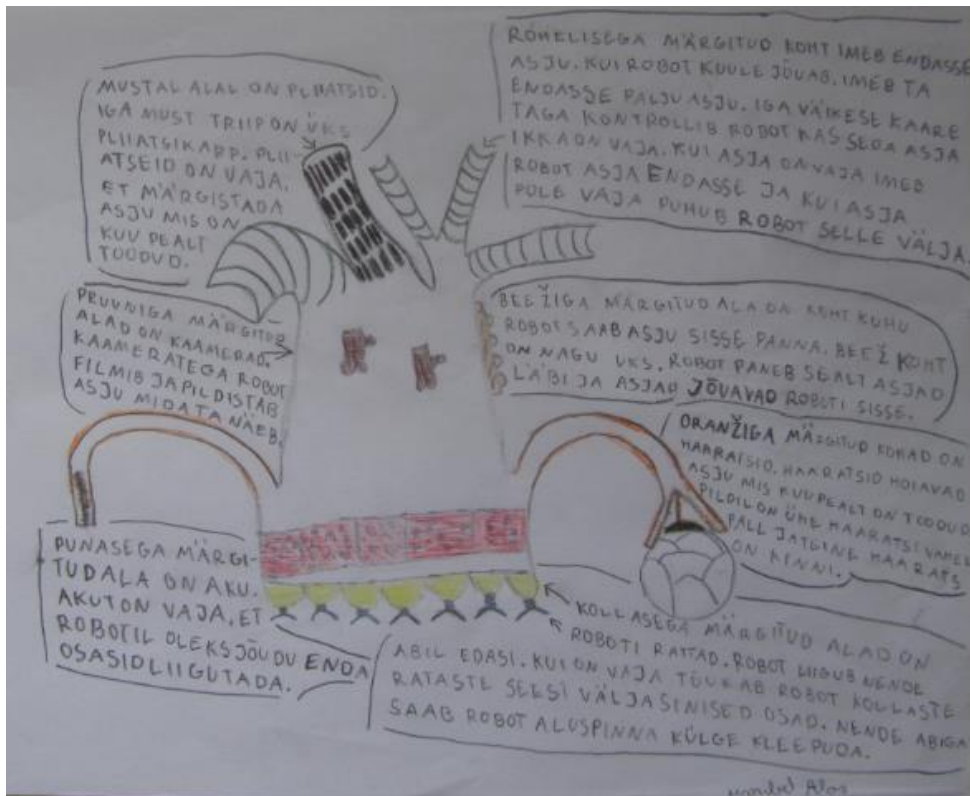 MUSTAL ALAL ON PLIIATSID.
IGA MUST TRIIP ON ÜKS
PLIIATSIKAPP. PLII-
ATSEID ON VAJA,
ET MÄRGISTADA
ASJU MIS ON
KUU PEALT
TOODUD.
ROHELISEGA MÄRGITUD KOHT IMEB ENDASSE
ASJU. KUI ROBOT KUULE JÕUAB, IMEB TA
ENDASSE PALJU ASJU. IGA VÄIKESE KAARE
TAGA KONTROLLIB ROBOT KAS SEDA ASJA
IKKA ON VAJA. KUI ASJA ON VAJA IMEB
ROBOT ASJA ENDASSE JA KUI ASJA
POLE VAJA PUHUB ROBOT SELLE VÄLJA.
PRUUNIGA MÄRGITUD
ALAD ON KAAMERAD.
KAAMERATEGA ROBOT
FILMIB JA PILDISTAB
ASJU MIDA TA NÄEB.
BEEŽIGA MÄRGITUD ALA ON KOHT KUHU
ROBOT SAAB ASJU SISSE PANNA. BEEŽ KOHT
ON NAGU UKS. ROBOT PANEB SEALT ASJAD
LÄBI JA ASJAD JÕUAVAD ROBOTI SISSE.
ORANŽIGA MÄRGITUD KOHAD ON
HAARATSID. HAARATSID HOIAVAD
ASJU MIS KUU PEALT ON TOODUD
PILDIL ON ÜHE HAARATSI VAHEL
PALL JA TEINE HAARATS
ON KINNI.
PUNASEGA MÄRGI-
TUD ALA ON AKU.
AKUT ON VAJA, ET
ROBOTIL OLEKS JÕUDU ENDA
OSASID LIIGUTADA.
KOLLASEGA MÄRGITUD ALAD ON
ROBOTI RATTAD. ROBOT LIIGUB NENDE
ABIL EDASI. KUI ON VAJA TÕUKAB ROBOT KOLLASTE
RATASTE SEEST VÄLJA SINISED OSAD. NENDE ABIGA
SAAB ROBOT ALUSPINNA KÜLGE KLEEPUDA.